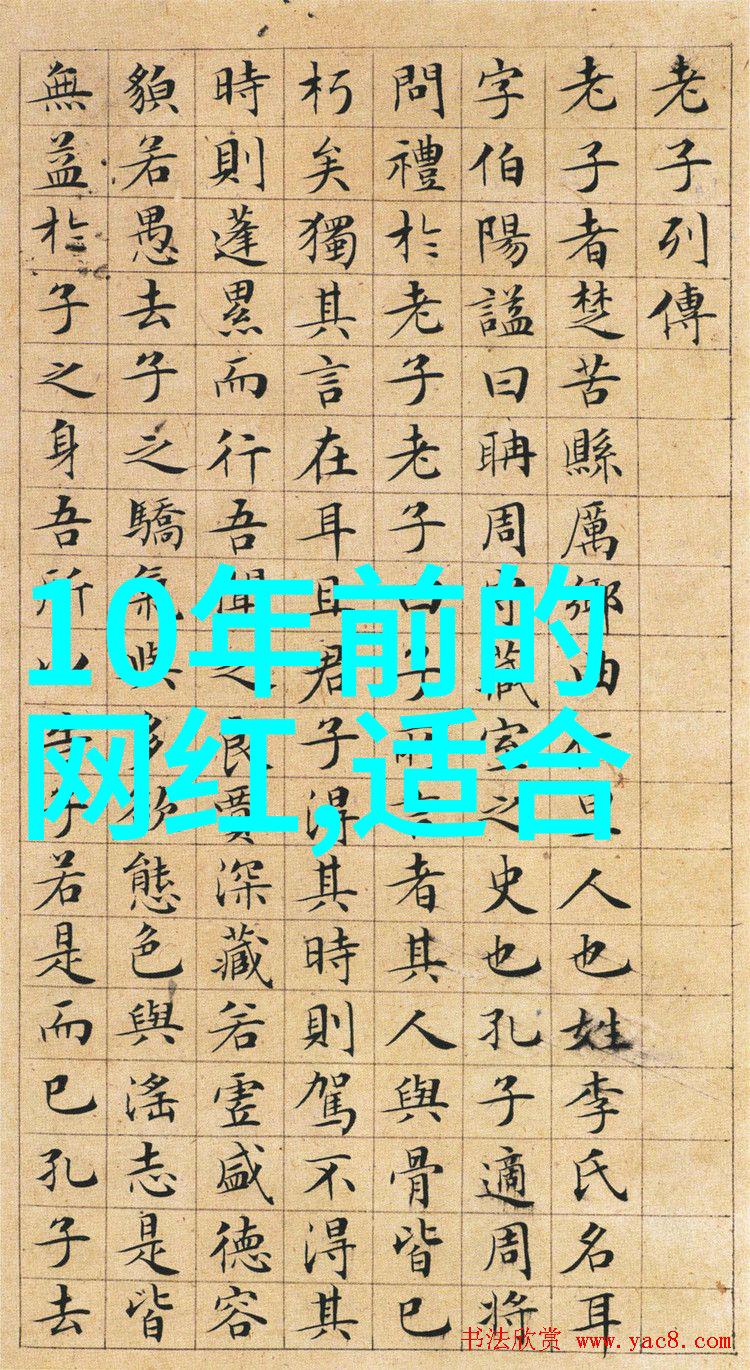 老子列傳
老子者楚苦縣厲鄉曲仁里人也姓李氏名耳
字伯陽謚曰聃周守藏室之史也孔子適周將
問禮於老子老子曰子所言者其人與骨皆已
朽矣獨其言在耳且君子得其時則駕不得其
時則蓬累而行吾聞之良賈深藏若虛盛德容
䫉若愚去子之驕氣與多欲態色與淫志是皆
無益於子之身吾所以告子若是而已孔子去
10年前的
网红,适合
书法欣赏 www.yac8.com